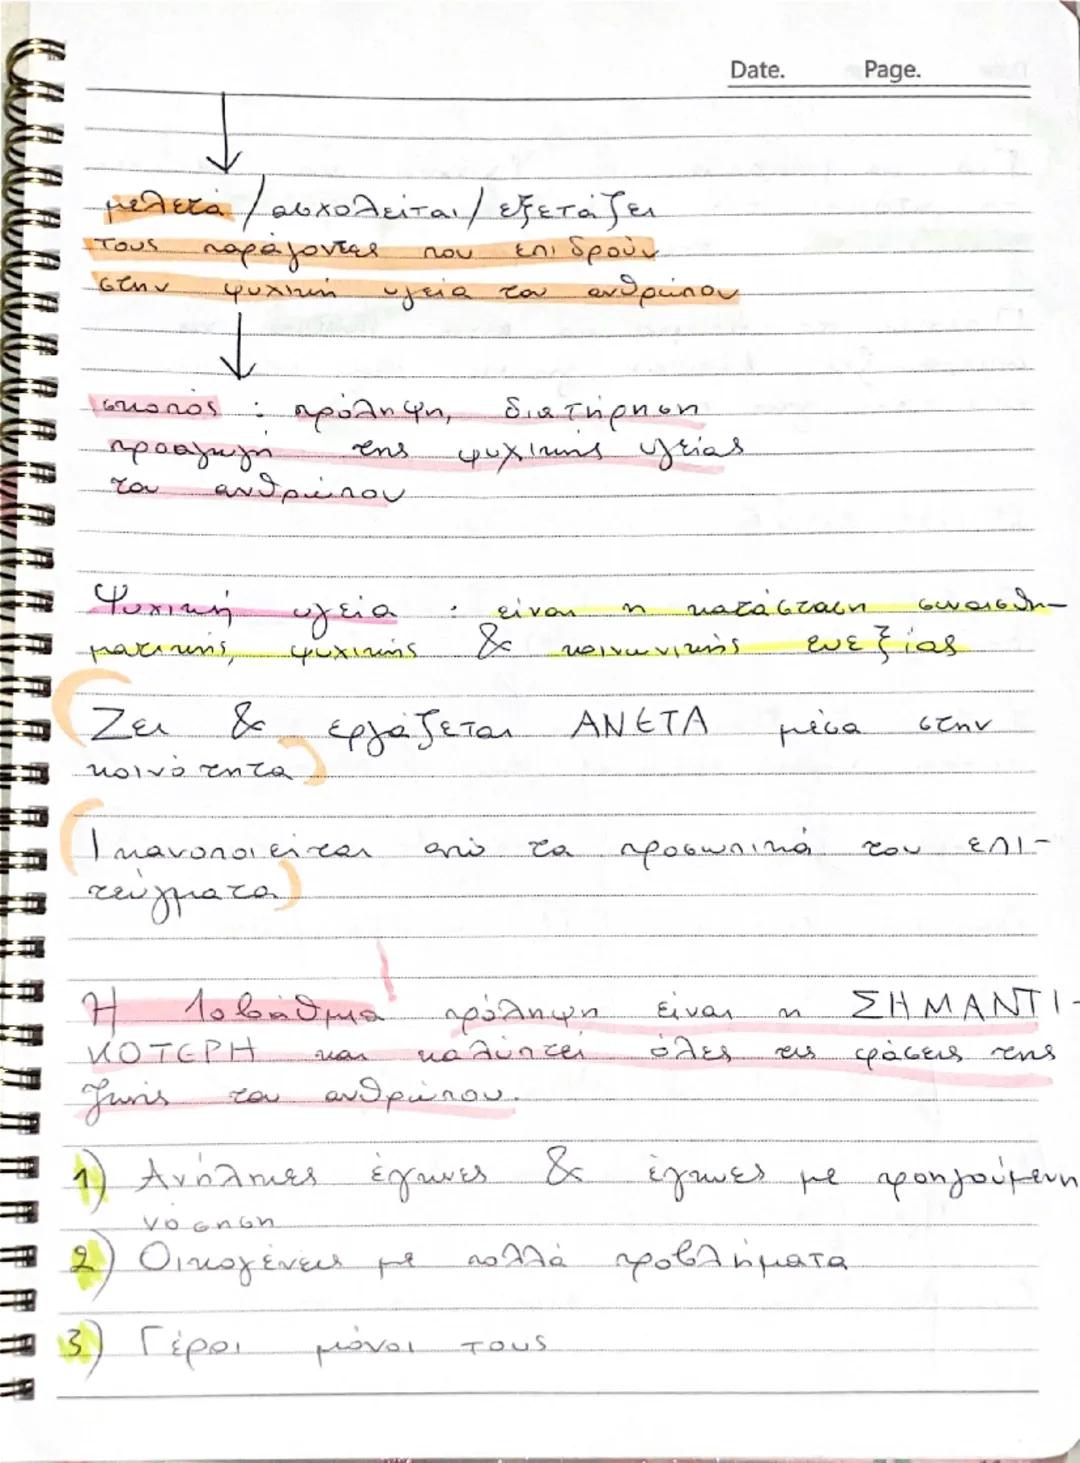 Date. Page.
μελετά / ασχολείται / εξετάζει
τους παράγοντες που επιδρούν
στην ψυχική υγεία του ανθρώπου
σκοπός : πρόληψη, διατήρηση
προαγωγή της ψυχικής υγείας
του ανθρώπου
Ψυχική υγεία : είναι η κατάσταση συναισθη-
ματικής, ψυχικής & κοινωνικής ευεξίας
Ζει & εργάζεται ΑΝΕΤΑ μέσα στην
κοινότητα
Ικανοποιείται από τα προσωπικά του επι-
τεύγματα
!
Η 1οβάθμια πρόληψη είναι η ΣΗΜΑΝΤΙ-
ΚΟΤΕΡΗ και καλύπτει όλες τις φάσεις της
ζωής του ανθρώπου.
1) Ανήλικες έγκυες & έγκυες με προηγούμενη
νόσηση
2) Οικογένειες με πολλά προβλήματα
3) Γέροι μόνοι τους